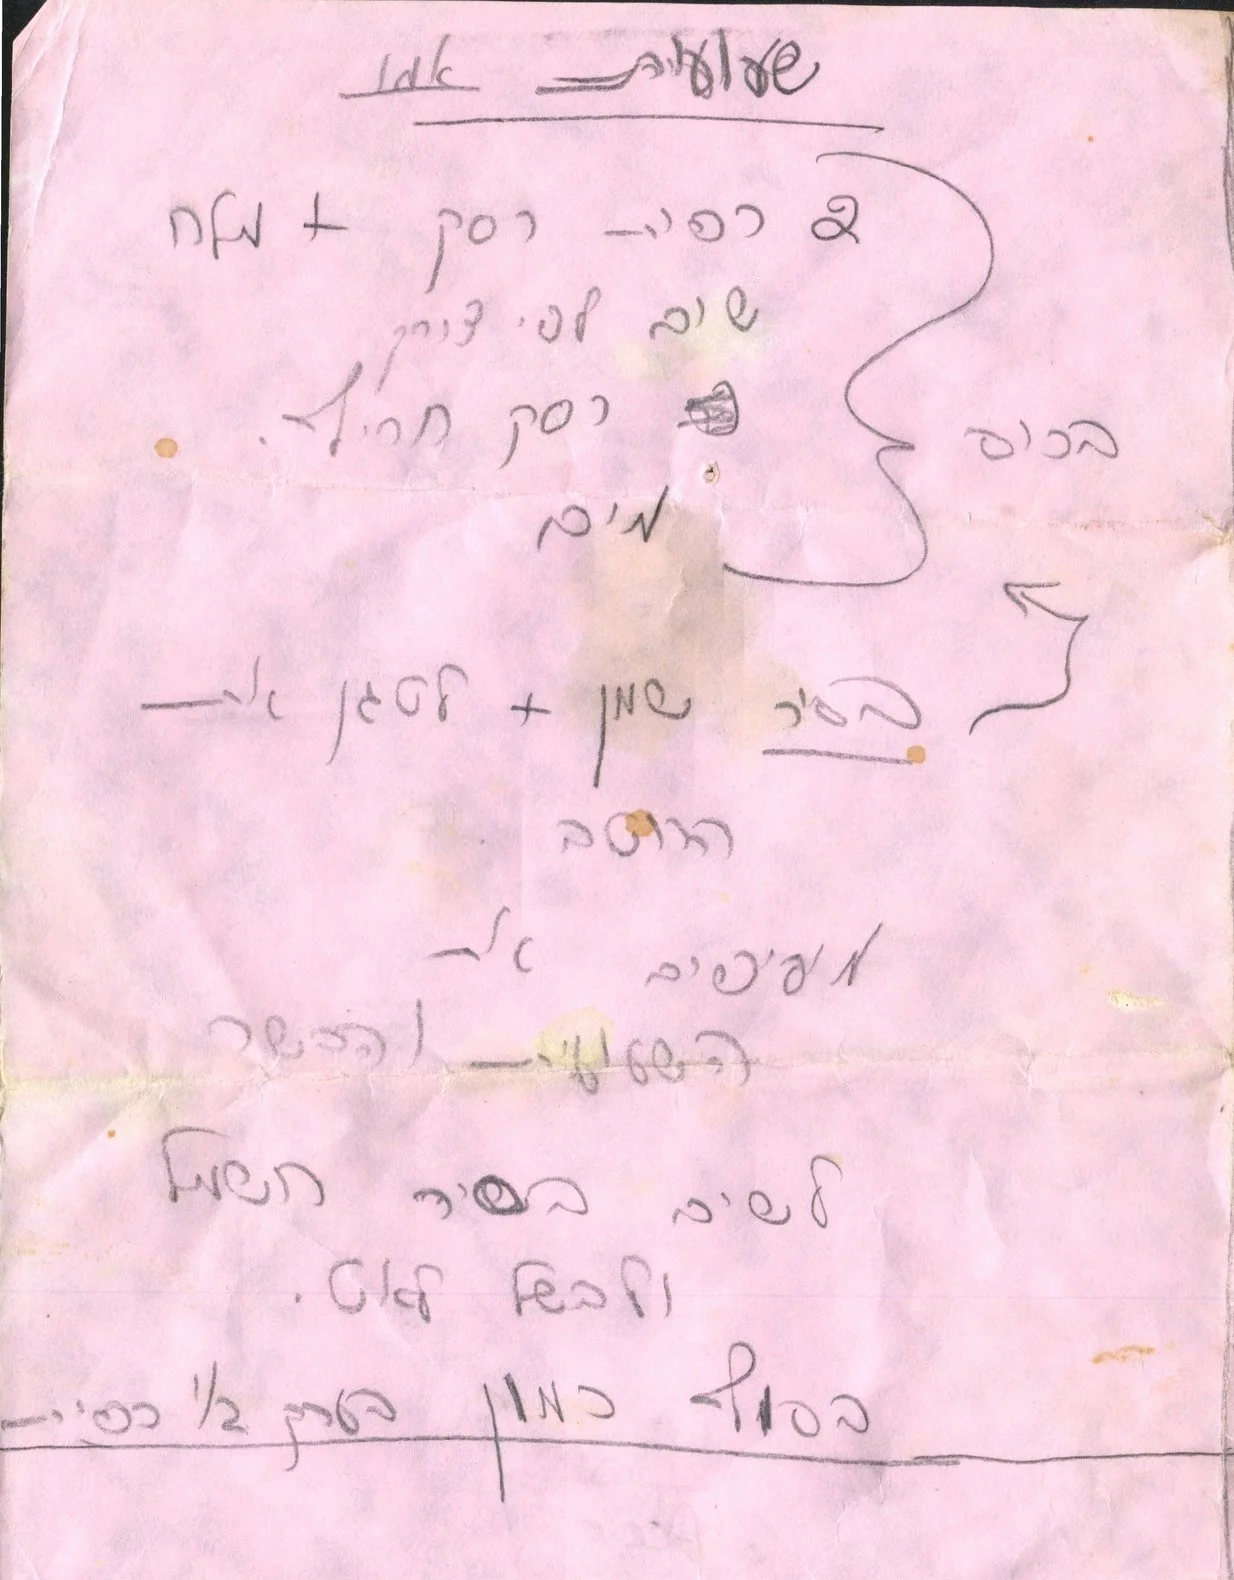 שעועית אמו
2 כפית רסק + מלח
שום לפי צורך
רסק חריף.
בכוס
מים
בסיר שמן + לטגן את
הרוטב
מוסיפים את
השעועית והבשר
לשים בסיר חשמל
ולבשל לאט.
בסוף כמון בערך 1/2 כפית